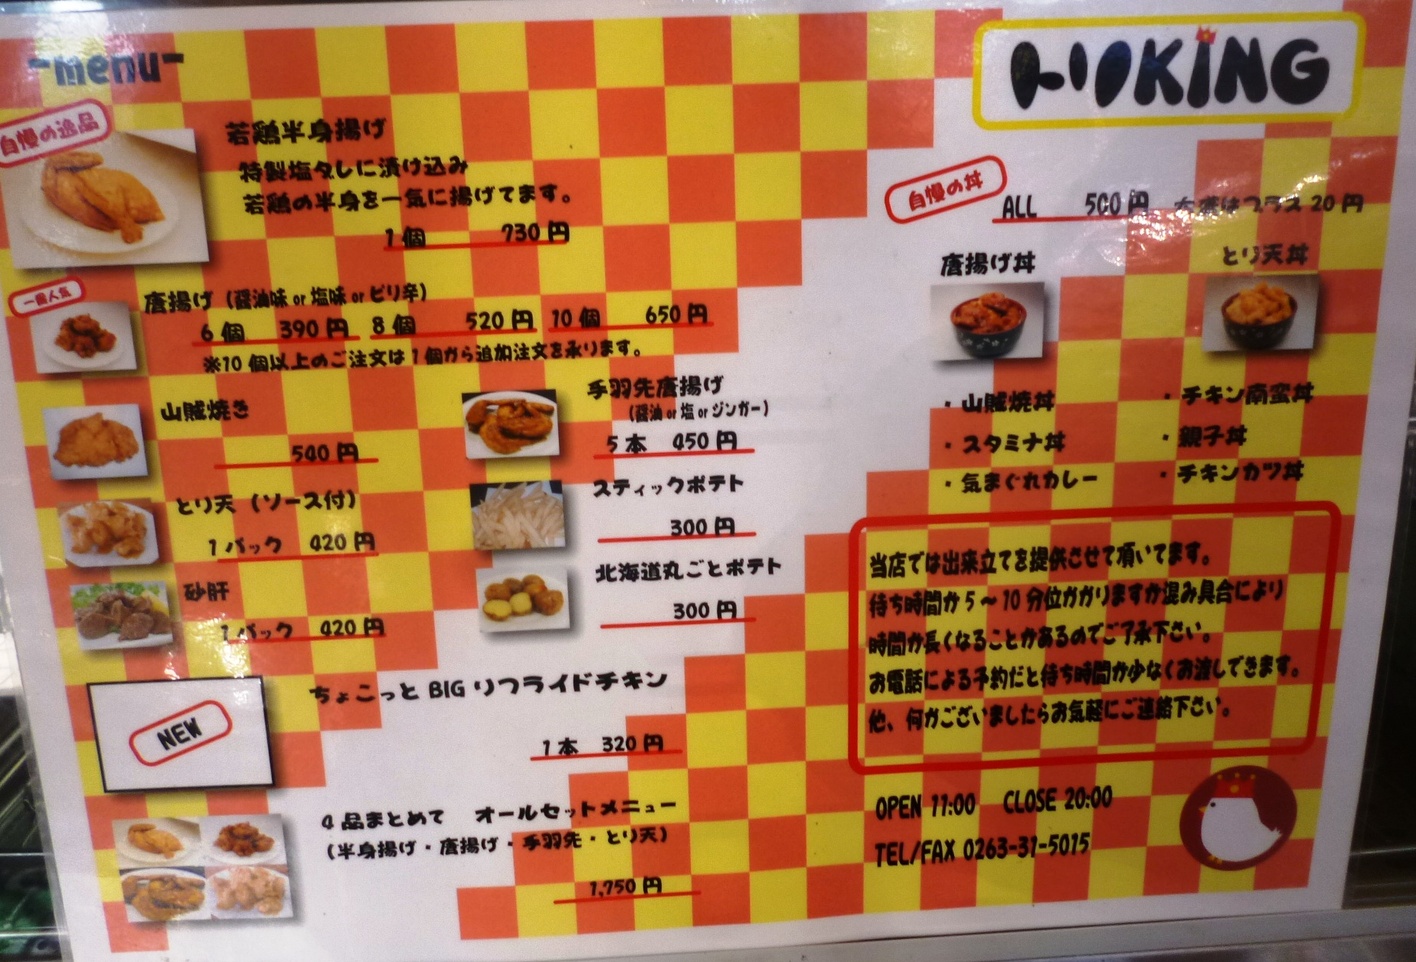 -menu-
トリKING
自慢の逸品
若鶏半身揚げ
特製塩タレに漬け込み
若鶏の半身を一気に揚げてます。
1個 730円
一番人気
唐揚げ (醤油味 or 塩味 or ピリ辛)
6個 390円 8個 520円 10個 650円
※10個以上のご注文は1個から追加注文を承ります。
山賊焼き
540円
とり天 (ソース付)
1パック 420円
砂肝
1パック 420円
手羽先唐揚げ
(醤油 or 塩 or ジンガー)
5本 450円
スティックポテト
300円
北海道丸ごとポテト
300円
NEW
ちょこっとBIGリフライドチキン
1本 320円
4品まとめて オールセットメニュー
(半身揚げ・唐揚げ・手羽先・とり天)
1,750円
自慢の丼
ALL 500円 プラス20円
唐揚げ丼
とり天丼
・山賊焼丼 ・チキン南蛮丼
・スタミナ丼 ・親子丼
・気まぐれカレー ・チキンカツ丼
当店では出来立てを提供させて頂いてます。
待ち時間が5～10分位かかりますが混み具合により
時間が長くなることがあるのでご了承下さい。
お電話による予約だと待ち時間が少なくお渡しできます。
他、何かございましたらお気軽にご連絡下さい。
OPEN 11:00 CLOSE 20:00
TEL/FAX 0263-31-5015